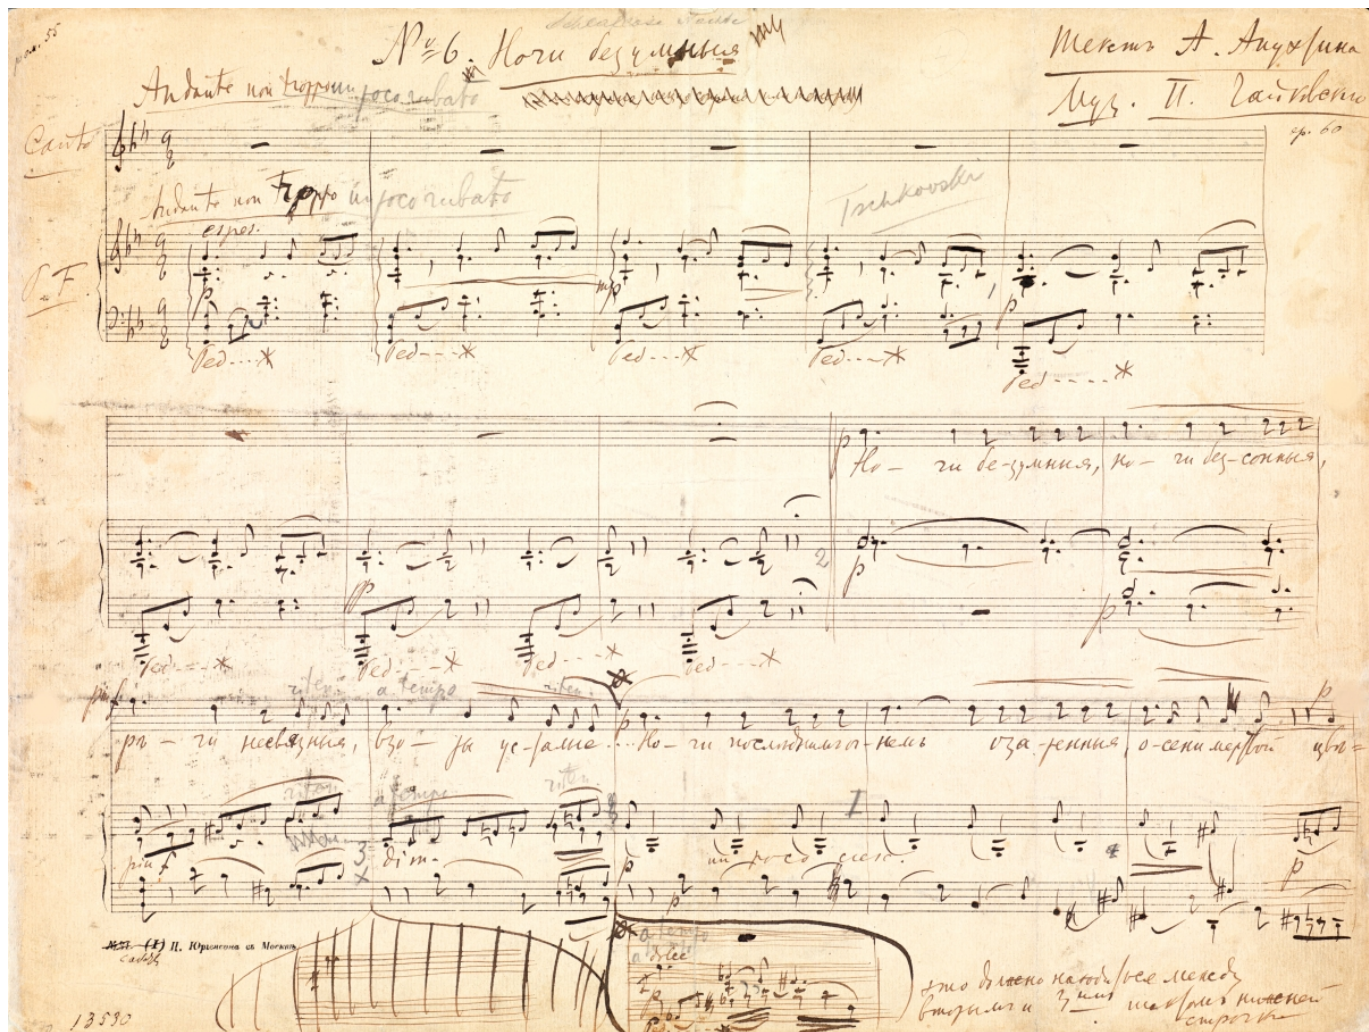 № 6. Ночи безумныя
Текстъ А. Апухтина
Муз. П. Чайковскаго
op. 60
Andante non troppo un poco rubato
Canto
Andante non troppo un poco rubato
Tschkovski
espres.
P. F.
p
mp
p
Ped----* Ped----* Ped----* Ped----* Ped----*
p
Но - чи бе-зумныя, но - чи без-сонныя,
pp
2
p
p
Ped----* Ped----* Ped----* Ped----*
riten. a tempo riten.
p
рѣ - чи несвязныя, взо - ры ус-талые... Но - чи послѣднимъ ог-немъ оза-ренныя, о-сени мертвой цвѣ-
riten. a tempo riten.
1
più f
3
dim.
p
un poco
p
p
a tempo
dolce
(I) П. Юргенсона въ Москвѣ
это должно находиться между
вторымъ и 3мъ тактомъ нижней
строчки
13530